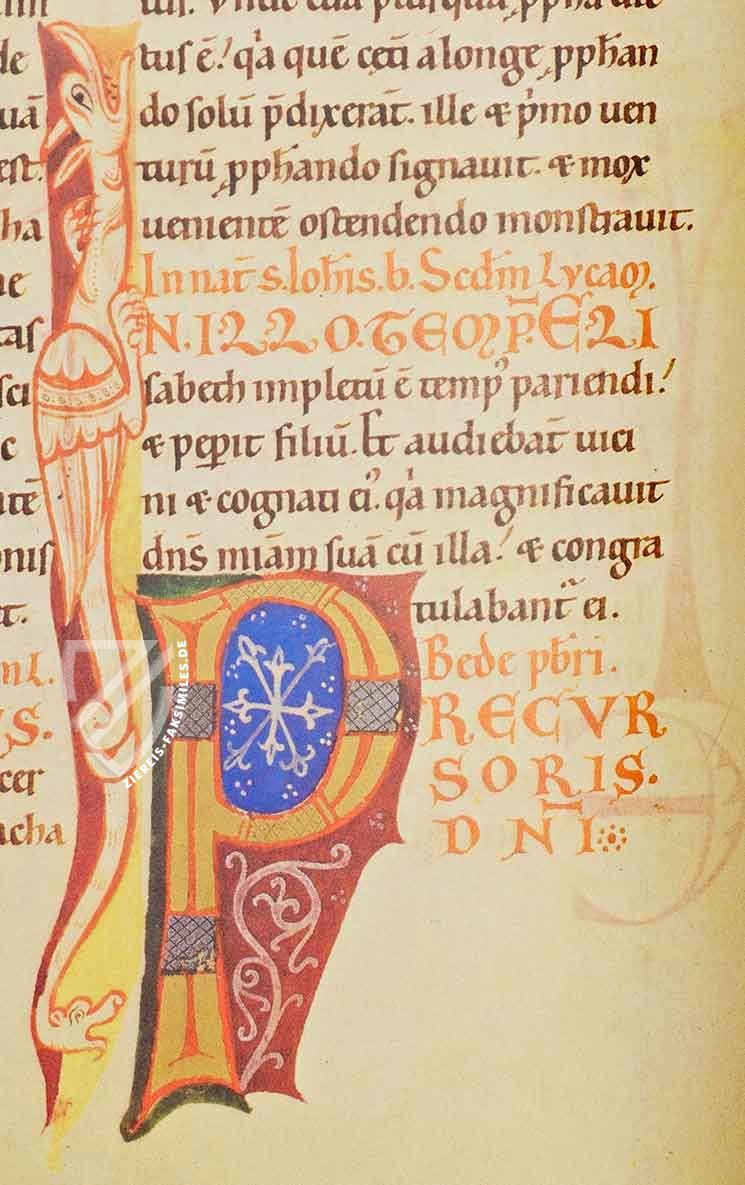 tus ē. q̄a quē cęti a longe ꝓph̄an
do solū p̄dixerat̄. ille ⁊ p̄mo uen
turū ꝓph̄ando signauit. ⁊ mox
uenientē ostendendo monstrauit.
In nat̄ s. Ioh̄is. b. Scd̄m Lucam.
IN. ILLO. TEMP̄. ELI
sabeth impletū ē temp᾽ pariendi.
⁊ peꝑit filiū. Et audiebat̄ uici
ni ⁊ cognati ei᾽. q̄a magnificauit
dn̄s miām suā cū illa. ⁊ congra
tulabant̄ ei.
Bede pb̄ri.
PRECVR
SORIS.
DN̄I
ZIEREIS-FAKSIMILES.DE